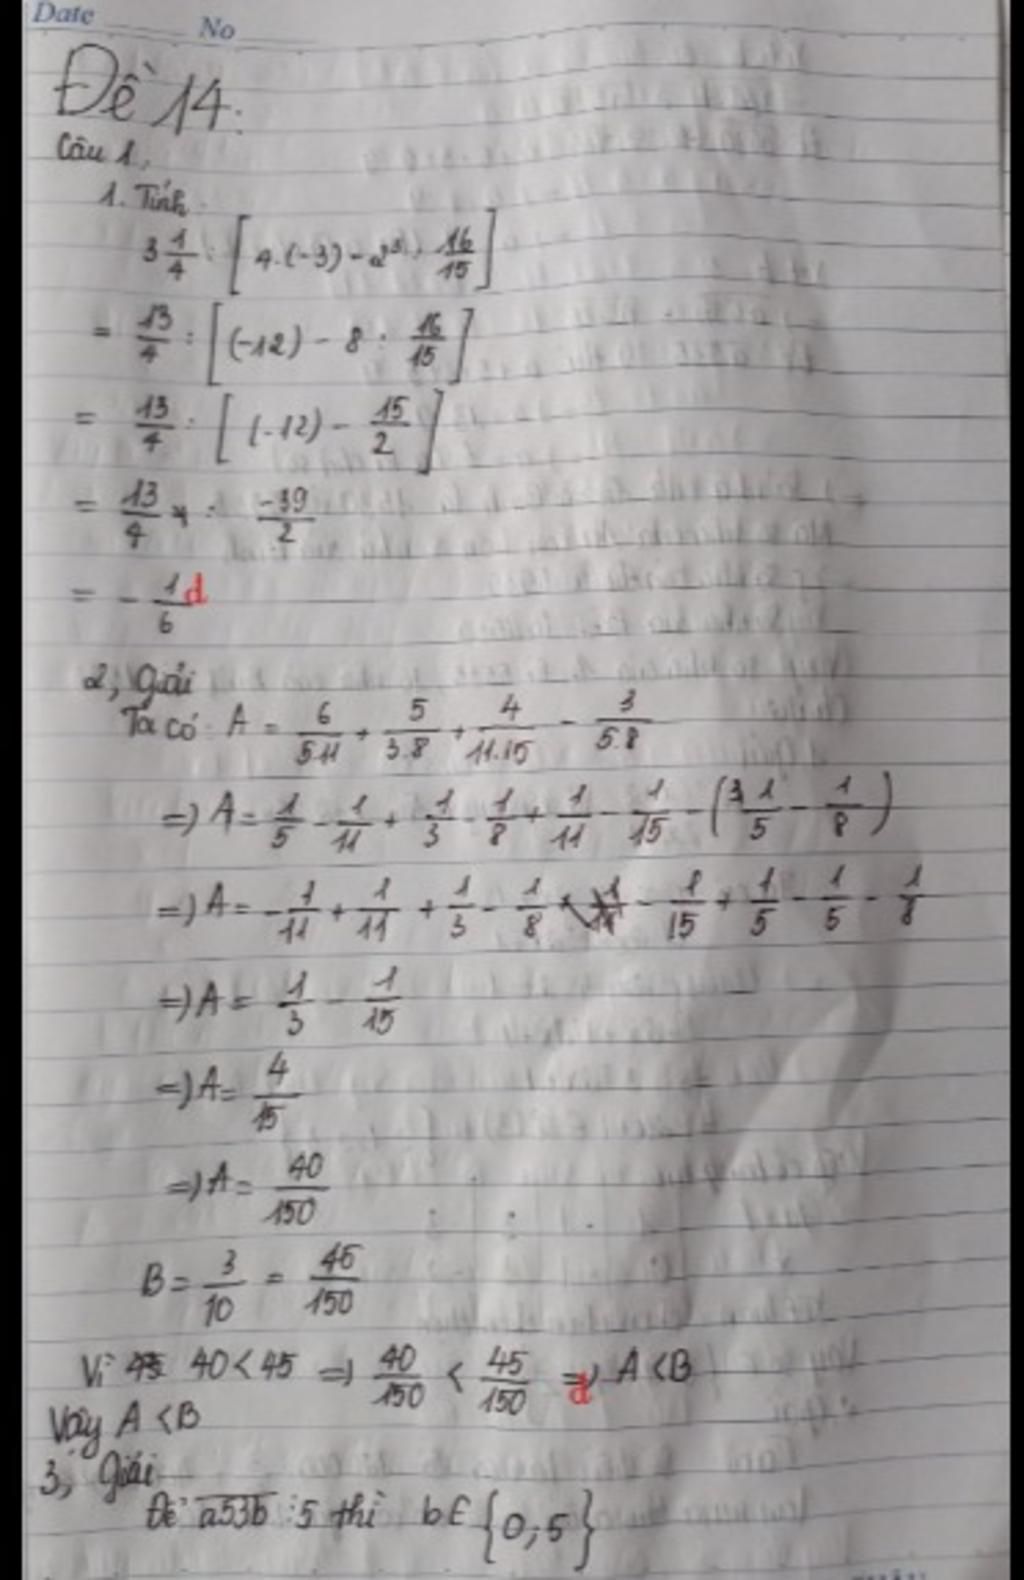 Date No
Đề 14:
Câu 1,
1. Tính
3 1/4 : [4.(-3) - 2³ : 16/15]
= 13/4 : [(-12) - 8 : 16/15]
= 13/4 : [(-12) - 15/2]
= 13/4 : -39/2
= - 1/6 d
2, Giải
Ta có: A = 6/5.11 + 5/3.8 + 4/11.15 - 3/5.8
=> A = 1/5 - 1/11 + 1/3 - 1/8 + 1/11 - 1/15 - (1/5 - 1/8)
=> A = - 1/11 + 1/11 + 1/3 - 1/8 - 1/15 + 1/5 - 1/5 - 1/8
=> A = 1/3 - 1/15
=> A = 4/15
=> A = 40/150
B = 3/10 = 45/150
Vì 40 < 45 => 40/150 < 45/150 => A < B d
Vậy A < B
3, Giải
Để a53b ⋮ 5 thì b ∈ {0;5}